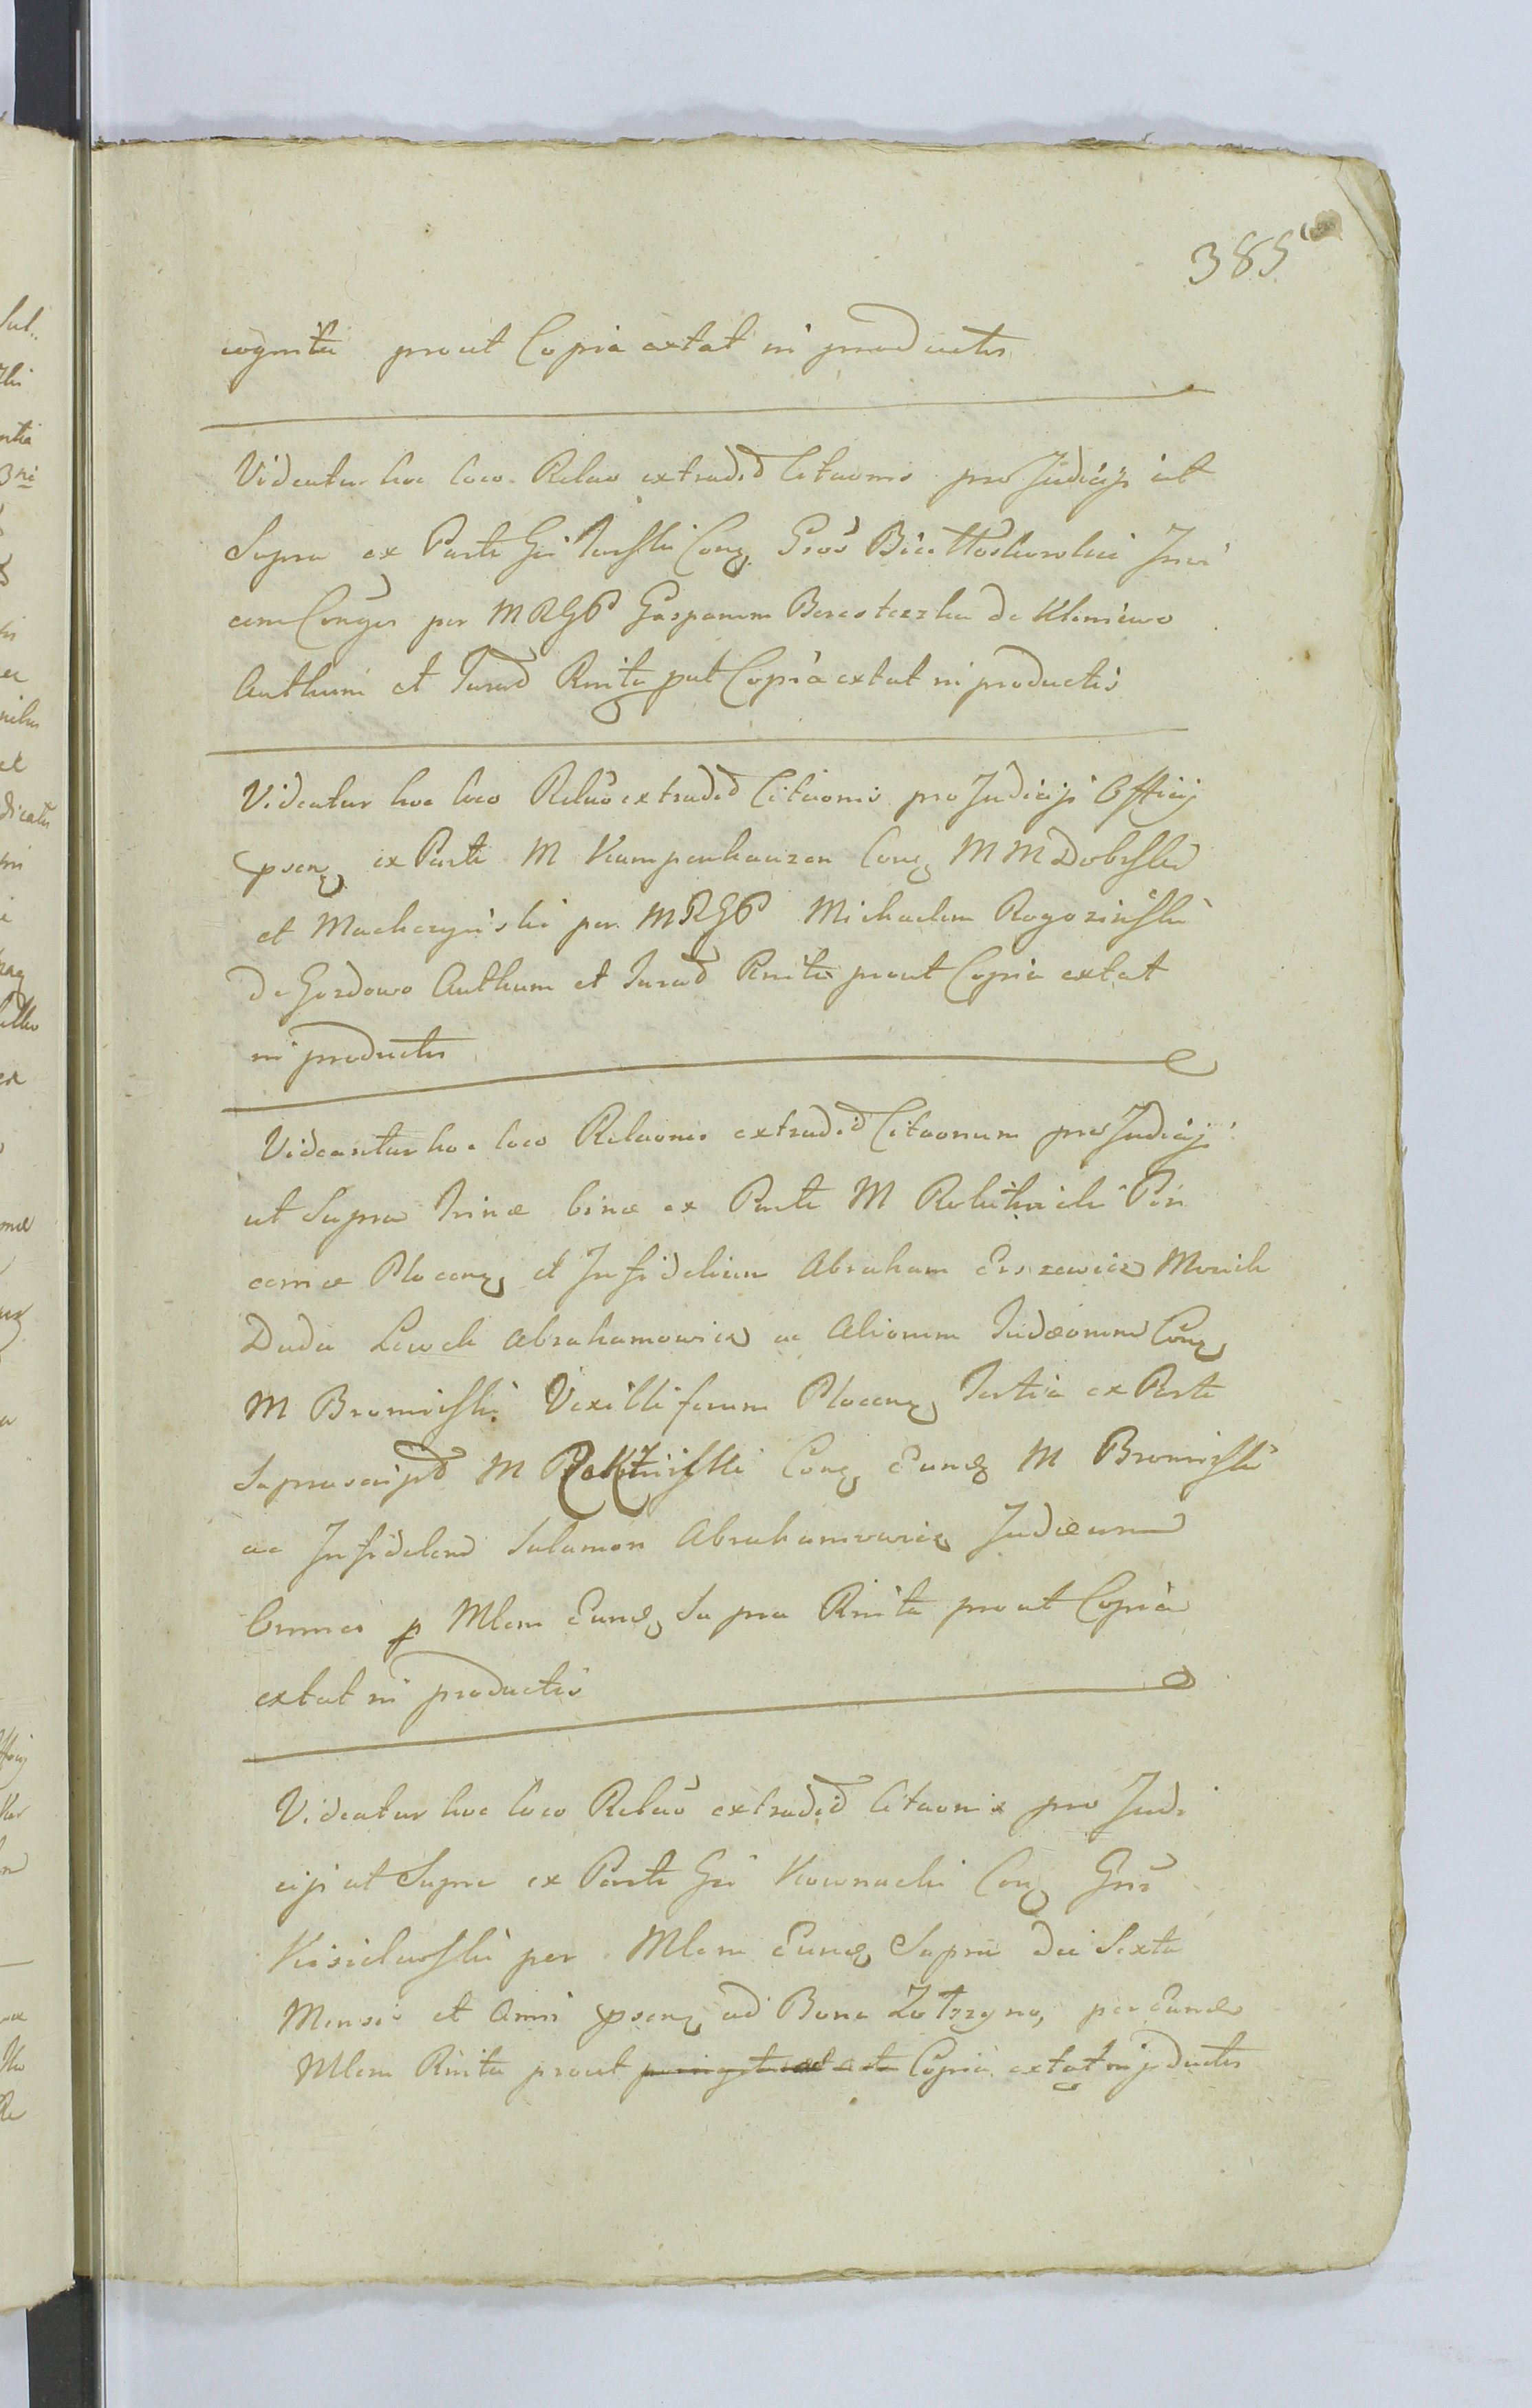 385
cognita prout Copia extat in productis
Videatur hoc loco Relao extradd Citaonis pro Judicijs ut
Supra ex Parte Gsi Con Gsos Białłoskorskie Invi
cem Conges per MRGP Gasparem Beresteczka de Kleniewo
Authum et Jurad Rnita put Copia extat in productis
Videatur hoc loco Relao extradd Citaonis pro Judicijs Officij
psen ex Parte M Kampenhauzen Con M M Dobrski
et Maczyński per MRGP Michaelem Rogozinski
de Gozdowo Authum et Jurad Rnita prout Copia extat
in productis
Videantur hoc loco Relaones extradd Citaonum pro Judicijs
ut Supra Trinae binae ex Parte M Pin
cernae Plocen et Infidelium Abraham Erszewicz
Duda Lewek Abrahamowicz ac Aliorum Judaeorum Con
M Bromirski Vexilliferum Plocen Tertia ex Parte
Suprascipt M Con Eund M Bromirski
ac Infidelem Salamon Abrahamowicz Judaeum
Omnes p Mlem Eund Supra Rnita prout Copia
extat in productis
Videatur hoc loco Relao extradd Citaonis pro Judi
cijs ut Supra ex Parte Gsi Kownacki Con Gsu
Kisielewski per Mlem Eund Supra die Sexta
Mensis et Anni psen ad Bona Zotrzyno, per Eund
Mlem Rnita prout Copia extat in pductis